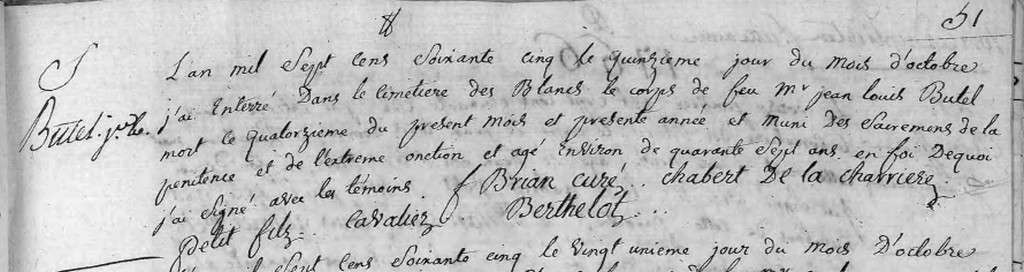 51
S
Butel. j.n L.
L'an mil Sept Cens Soixante cinq le quinzieme jour du mois d'octobre
j'ai Interré Dans le cimétiere des Blancs le corps de feu Mr jean louis Butel
mort le quatorzieme du present mois et presente année et muni Des Sacremens de la
penitence et de l'extreme onction et agé Environ de quarante sept ans. en foi Dequoi
j'ai signé avec les témoins f Brian curé. chabert De la charriere
petit fils. Cavalier Berthelot
Sept Cens Soixante cinq le vingt unieme jour du mois D'octobre